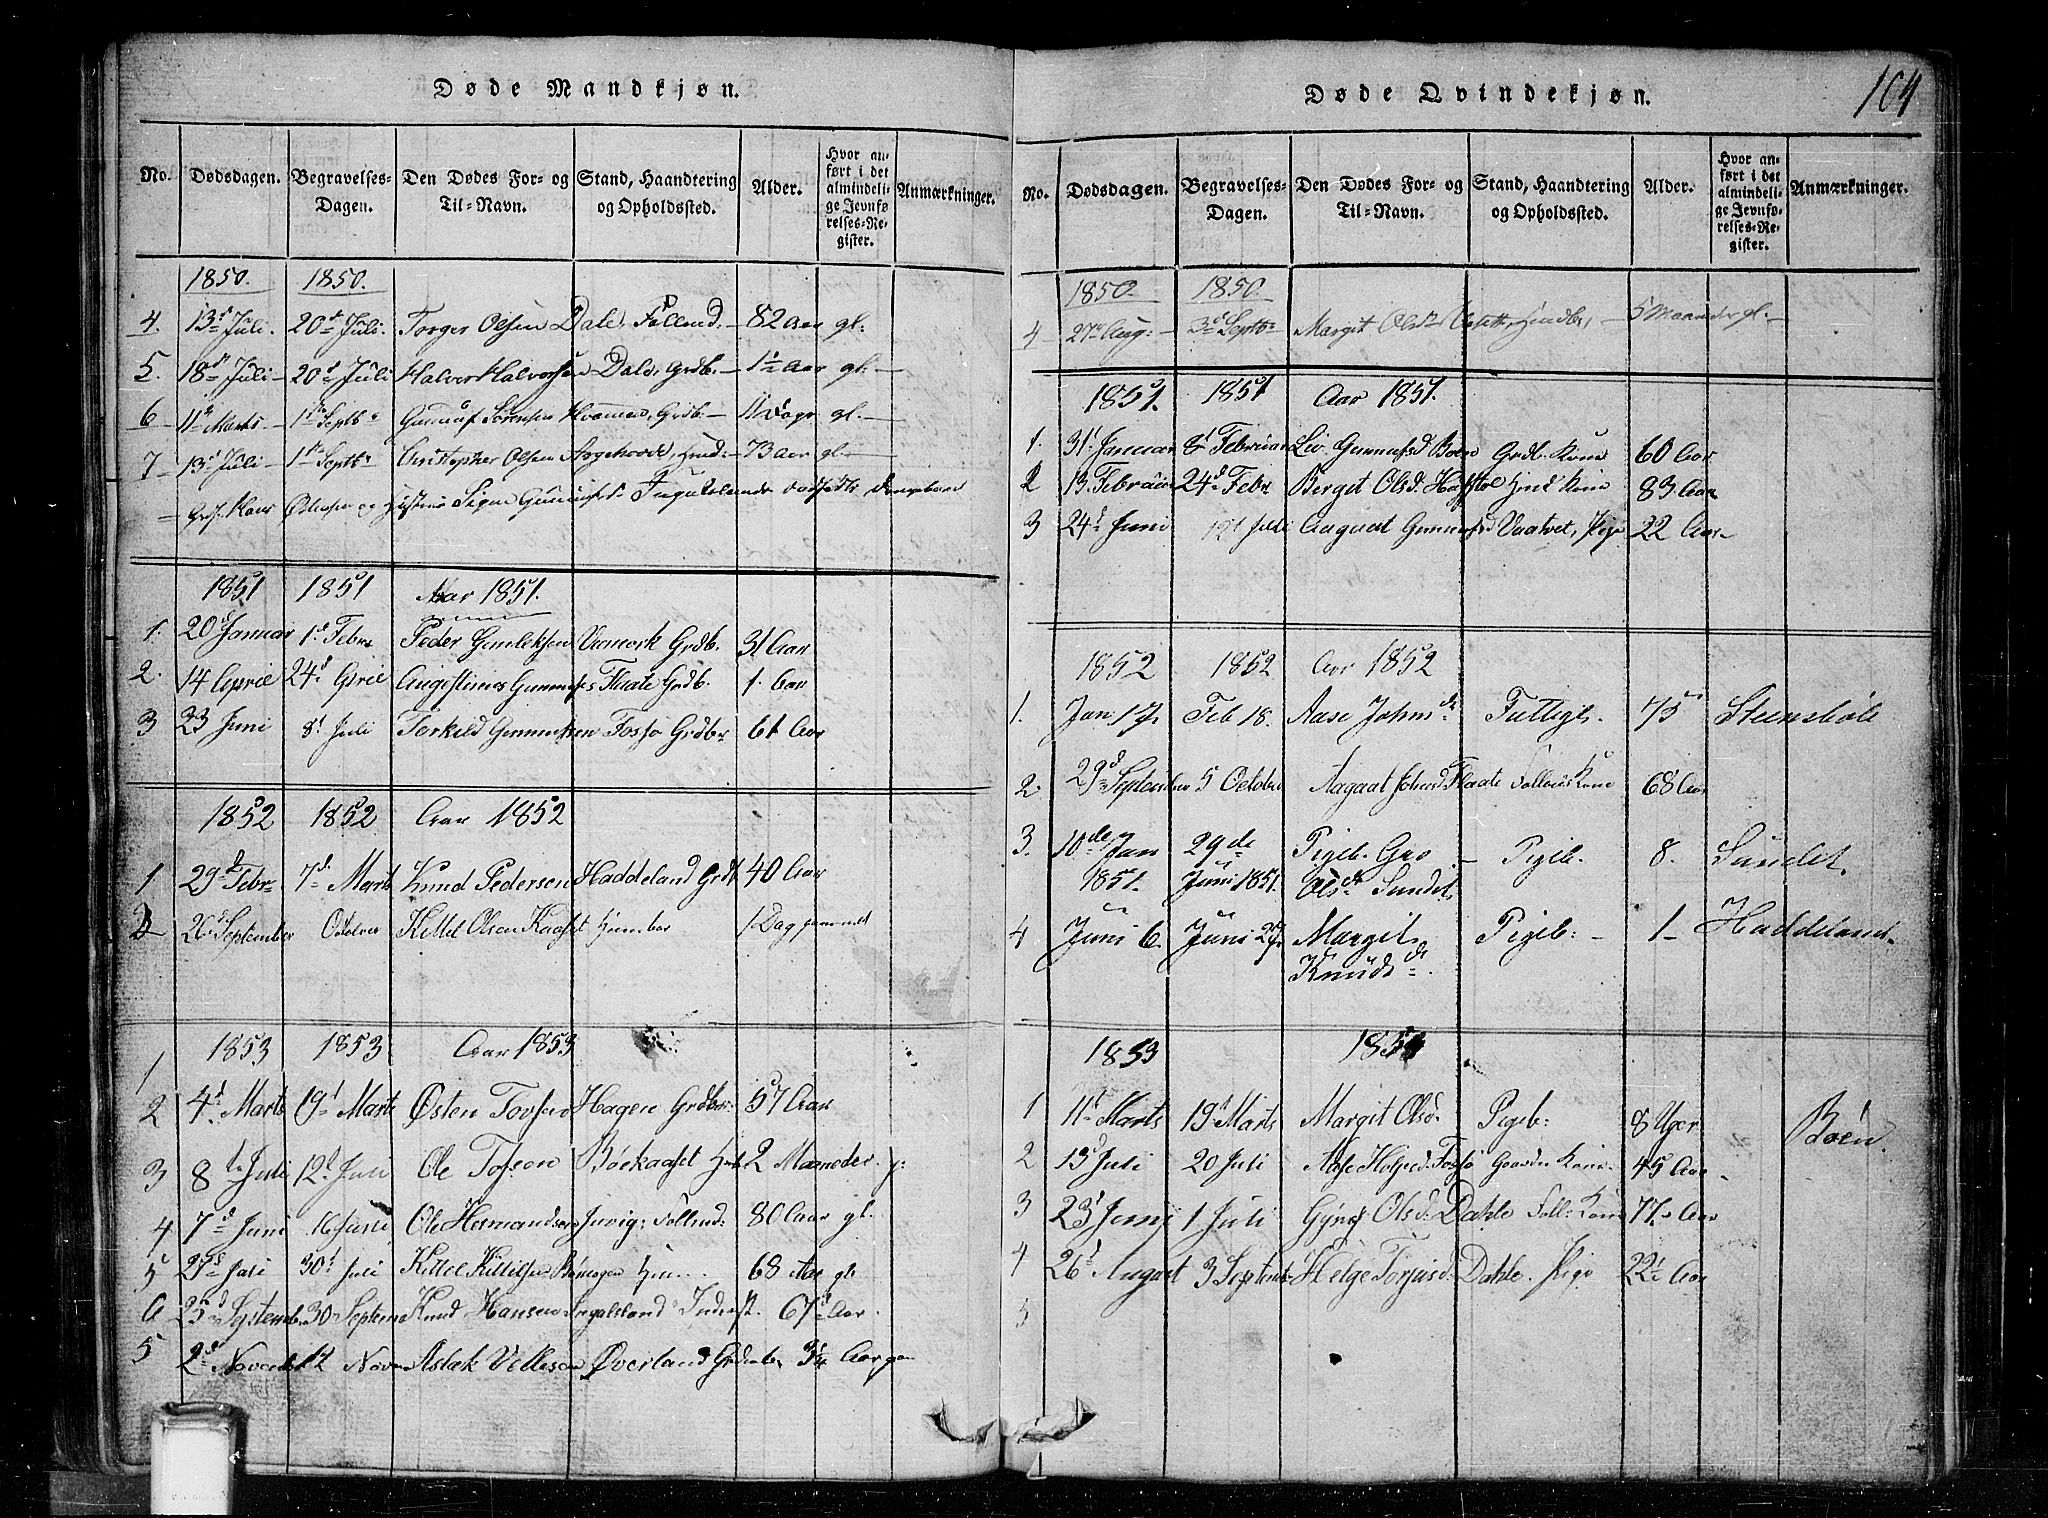 Døde Mandkjøn.
No.
Dødsdagen.
Begravelses-
Dagen.
Den Dødes For- og
Til-Navn.
Stand, Haandtering
og Opholdssted.
Alder.
Hvor an-
ført i det
almindeli-
ge Jevnfø-
relses-Re-
gister.
Anmærkninger.
1850. 1850.
4. 13de Juli. 20de Juli. Torger Olsen Dale, Føllmd: 82 Aar gl:
5. 18de Juli 20de Juli Halvor Halvorsen Dale, Grdb: 1½ Aar gl:
6 11te Marts 1ste Septbr Gunnuf Sørensen Hvammen, Grdb: 11 Dage gl.
7 13de Juli 1ste Septbr Christopher Olsen Aagehovd, Hmd: 73 Aar gl.
1851 1851 Aar 1851.
1. 20d Januar 1d Febr Peder Gunleksen Vamork Grdb. 31 Aar
2. 14 April 24d April Gunnufs Flaate Grdb. 1. Aar
3 23 Juni 8d Juli Torkild Gunnufsen Fossø Grdbr 61 Aar
1852 1852 Aar 1852
1 29d Febr 7d Marts Knud Pedersen Haddeland Grdb 40 Aar
2 26d September October Kittel Olsen Kaaset Huusmbr 1 Dag gammel
1853 1853 Aar 1853
1
2 4d Marts 19d Marts Østen Tovsen Hagen Grdbr: 57 Aar
3 8d Juli 12d Juli Ole Bøekaaset 2 Maaneder
4 7d Juni 16 Juni Ole Hermandsen Juvig: Føllmd: 80 Aar gl.
5 27d Juli 30d Juli Kittel Kittilsen Hum. 68 Aar gl
6 25d Septemb 30 Septemb Knud Hansen Ingulsland Inderst. 67 Aar.
5 2d Novemb 12 Novb Aslak Vellesen Øverland 3¼ Aar
Døde Qvindekjøn.
104
No.
Dødsdagen.
Begravelses-
Dagen.
Den Dødes For- og
Til-Navn.
Stand, Haandtering
og Opholdssted.
Alder.
Hvor an-
ført i det
almindeli-
ge Jevnfø-
relses-Re-
gister.
Anmærkninger.
1850. 1850
4 27de Aug: 3de Septbr Margit Olsdr 5 Maaneder gl.
1851. 1851 Aar 1851.
1. 31 Januar Februar Liv Gunnufsd Boen Grdb. Kone 60 Aar
2 13 Februar 24d Febr Birget Olsd. Hmd. Kone 83 Aar
3 24d Juni 12d Juli Aagaat Gunnufsd Vaatvet, Pige 22 Aar
1852 1852 Aar 1852
1. Jan 17. Feb 18. Aase Johnsdr Fattigl. 75 Steenshole
2. 29d September 5 October Aagaat Johnsd Flaate Follmds Kone 68 Aar
3. 10de Jan 29de Pigeb. Gro Pigeb. 8. Sundet.
1851. Juni 1851. Olsdr Sundet
4 Juni 6. Juni 27. Margit Pigeb: 1 Haddeland.
Knudsdr.
1853 1853
1 11d Marts 19d Marts Margit Olsd. Pigeb: 8 Uger Boen
2 13d Juli 20 Juli Aase Fossø Gaardm Kone 45 Aar
3 23d Junij 1 Juli Olsd. Dahle Foll: Kone 77 Aar
4 26d August 3 Septemb Helge Torjusd. Dahle. Pige 22 Aar
5